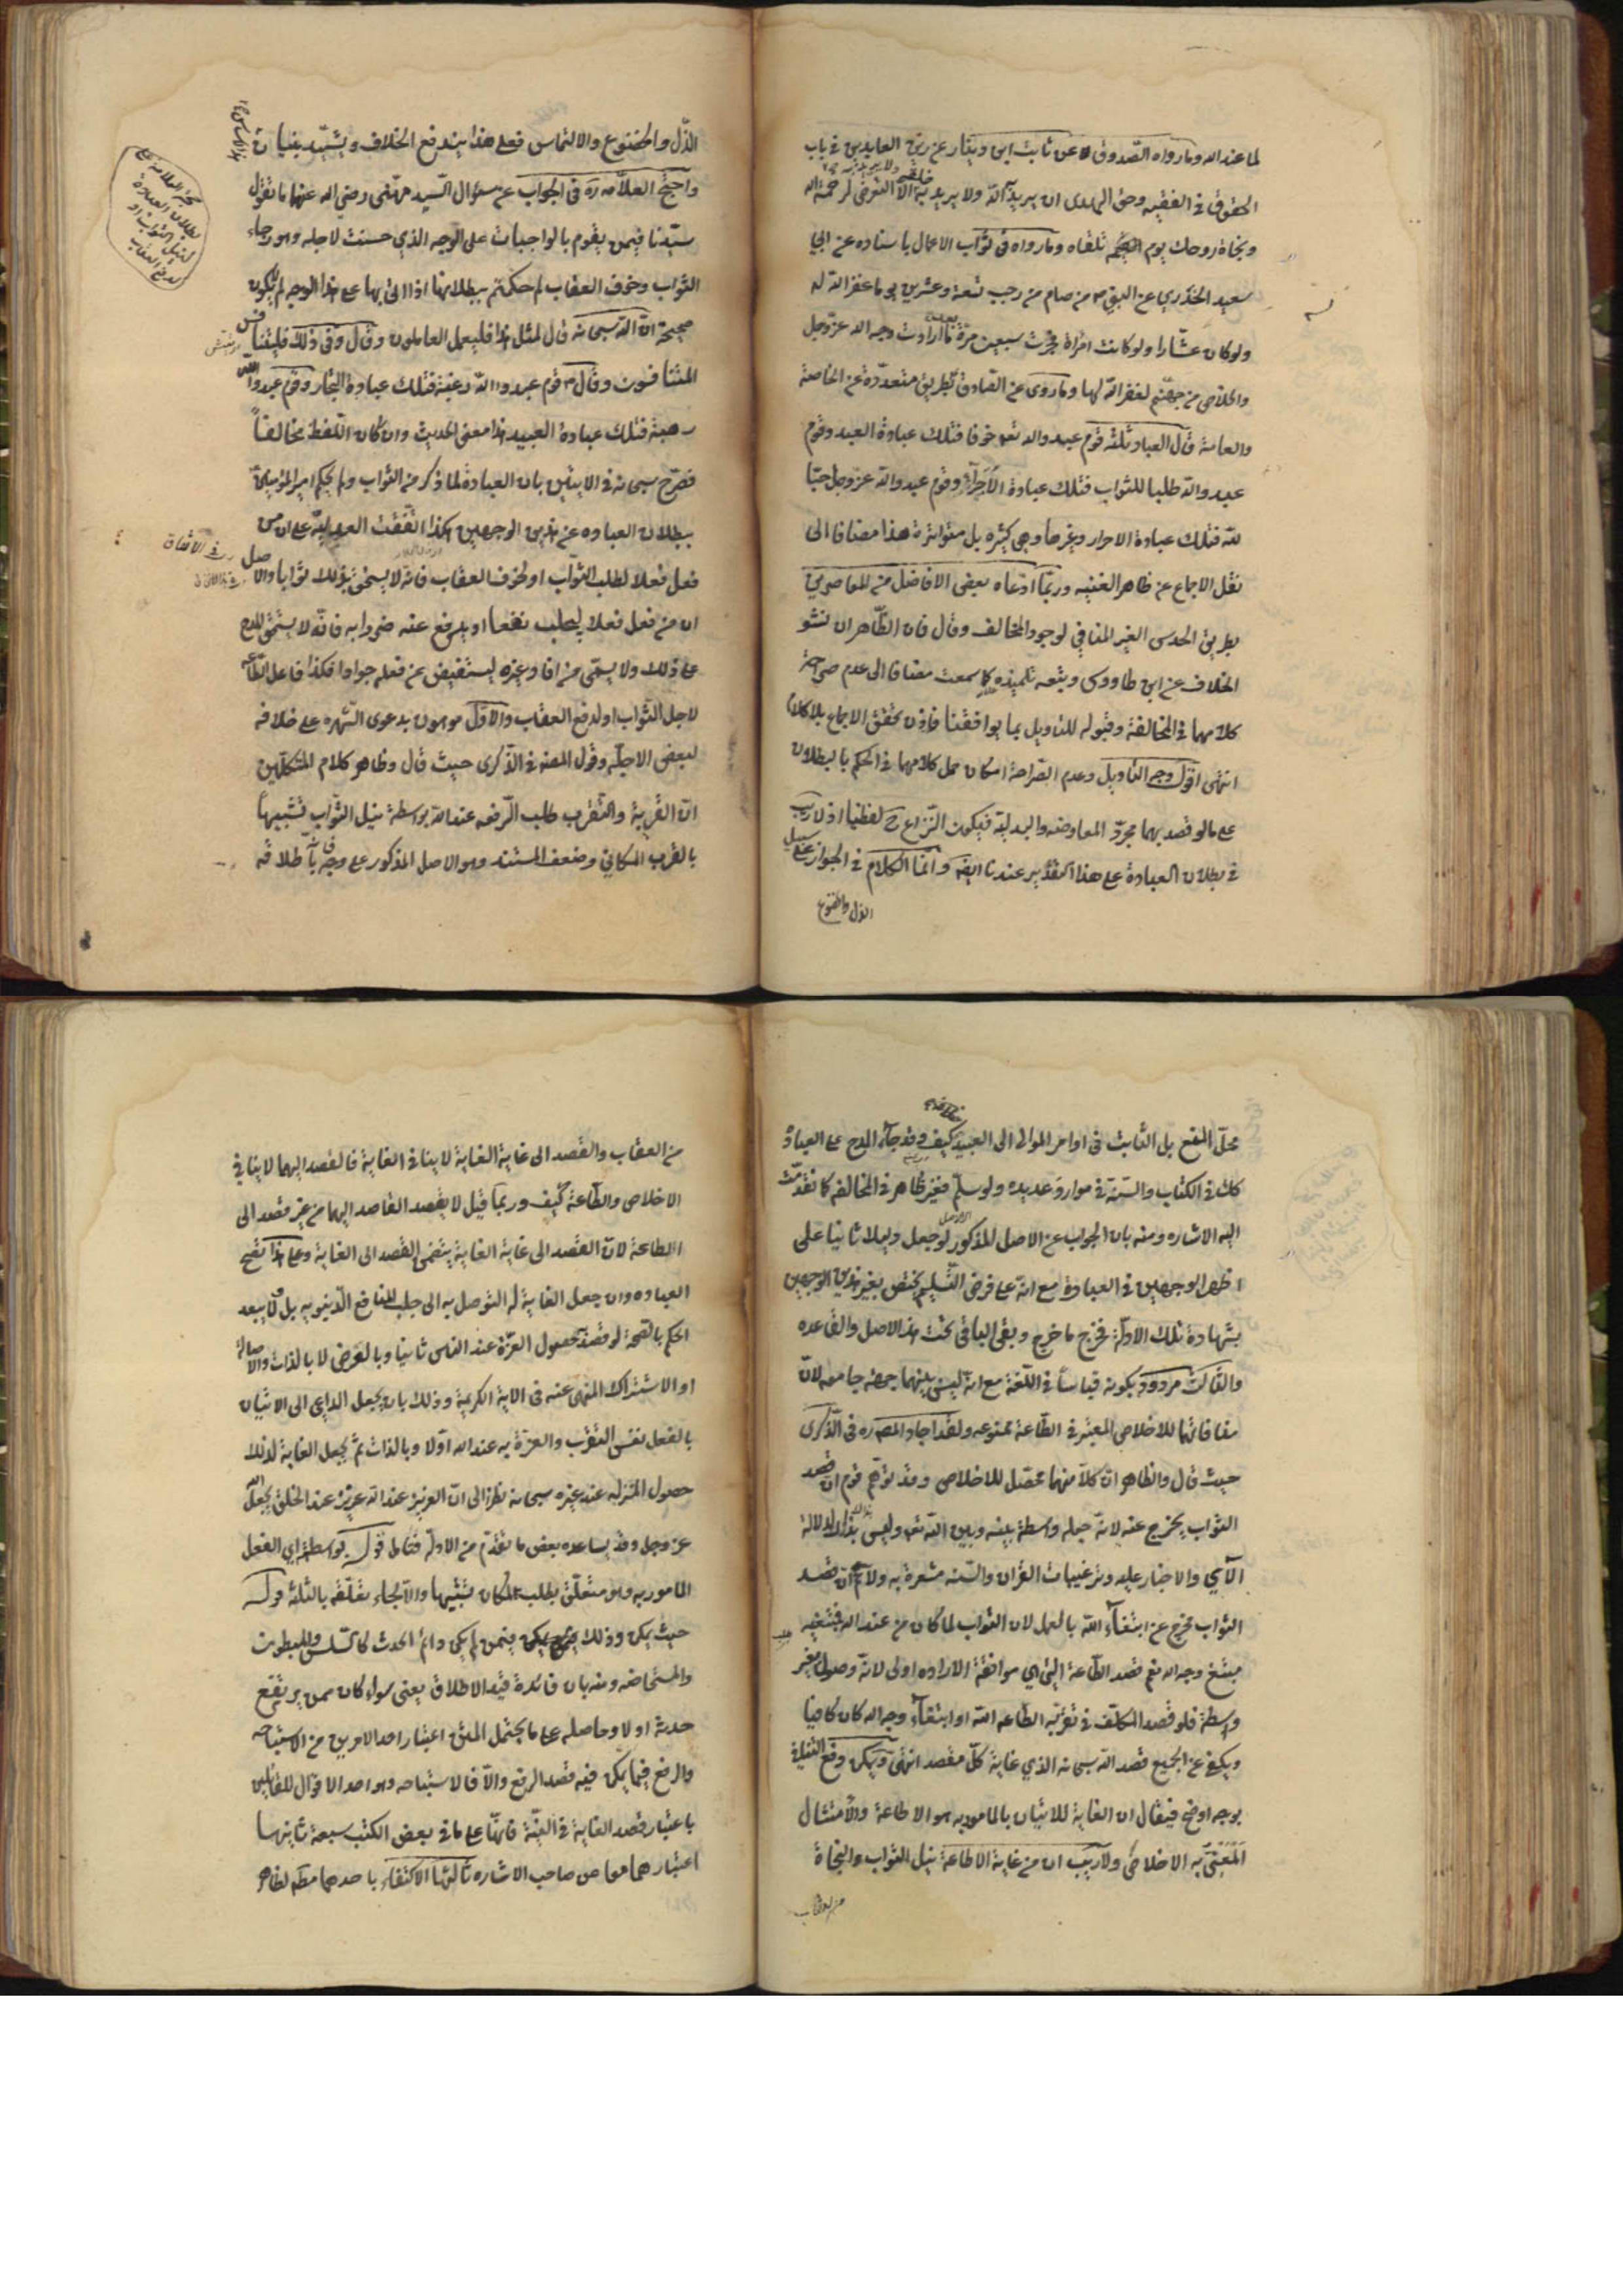 لما عند الله وما رواه الصدوق عن ثابت ابن دينار عن زين العابدين في باب
الحقوق في الفقيه وحق الهدى ان يريد الله ولا يريد به الا التعرض لرحمة الله
ونجاة روحك يوم تلقاه وما رواه في ثواب الاعمال باسناده عن ابي
سعيد الخدري عن النبي ص من صام من رجب تسعة وعشرين يوما غفر الله له
ولو كان عشارا ولو كانت امراة فجرت سبعين مرة ما ارادت وجه الله عز وجل
والخلاص من جهنم لغفر الله لها وما روى عن الصادق بطريق متعددة عن الخاصة
والعامة قال العباد ثلثه قوم عبدوا الله تعا خوفا فتلك عبادة العبيد وقوم
عبدوا الله طلبا للثواب فتلك عبادة الاجراء وقوم عبدوا الله عز وجل حبا
لله فتلك عبادة الاحرار وغيرها وهي كثيره بل متواترة هذا مضافا الى
نقل الاجماع عن ظاهر الغنيه وربما ادعاه بعض الافاضل من المعاصرين
بطريق الحدس الغير المنافي لوجود المخالف وقال فان الظاهر ان نشو
الخلاف عن ابن طاووس وتبعه تلميذه كما سمعت مضافا الى عدم صراحة
كلامهما في المخالفة وقبوله للتاويل بما يوافقنا فاذن تحقق الاجماع بلا كلام
انتهى اقول وجه التاويل وعدم الصراحة امكان حمل كلامهما في الحكم بالبطلان
على ما لو قصد بهما مجرد المعاوضه والبدلية فيكون النزاع ح لفظيا اذ لا ريب
في بطلان العبادة على هذا التقدير عندنا ايضا وانما الكلام في الجواز على سبيل
الذل والخضوع
الذل والخضوع والالتماس فعلى هذا يندفع الخلاف ويشيد بنيان
واحتج العلامه ره في الجواب عن سؤال السيد مهنى رضي الله عنهما ما تقول
سيدنا فيمن يقوم بالواجبات على الوجه الذي حسنت لاجله وهو رجاء
الثواب وخوف العقاب لم حكمتم ببطلانها اذا اتى بها على هذا الوجه لم يكون
صحيحة ان الله سبحانه قال لمثل هذا فليعمل العاملون وقال وفي ذلك فليتنافس
المتنافسون وقال ع قوم عبدوا الله رغبة فتلك عبادة التجار وقوم عبدوا الله
رهبة فتلك عبادة العبيد هذا معنى الحديث وان كان اللفظ مخالفاً
فصرح سبحانه في الايتين بان العبادة لما ذكر من الثواب ولم يحكم امير المؤمنين ع
ببطلان العباده عن هذين الوجهين هكذا اتفقت العدليه على ان من
فعل فعلا لطلب الثواب او لخوف العقاب فانه لا يستحق بذلك ثوابا والاصل
ان من فعل فعلا ليطلب نفعا او يدفع عنه ضررا به فانه لا يستحق المدح
على ذلك ولا يسمى من افاد غيره ليستفيض عن فعله جوادا فكذا فاعل الطاعه
لاجل الثواب او لدفع العقاب والاول موهون بدعوى الشهره على خلافه
لبعض الاجله وقول المصنف في الذكرى حيث قال وظاهر كلام المتكلمين
ان القربة والتقرب طلب الرفعه عند الله بواسطة نيل الثواب تشبيهاً
بالقرب المكاني وضعف المستند وهو الاصل المذكور على وجه اطلاقه
حجة العلامة على
بطلان العبادة
لنيل الثواب او
لدفع العقاب
محل المنع بل الثابت في اوامر الموالى الى العبيد كيف وقد جاء المدح على العبادة
كك في الكتاب والسنة في موارد عديده ولو سلم فغير ظاهر في المخالفه كما تقدمت
اليه الاشاره ومنه بان الجواب عن الاصل المذكور لو جعل دليلا ثانيا على
اخذ الوجهين في العبادة مع انه على فرض التسليم يختص بغير هذين الوجهين
بشهادة تلك الادلة فخرج ما خرج وبقى الباقي تحت هذا الاصل والقاعده
والثالث مردود بكونه قياساً في اللغة مع انه ليس بينهما جهة جامعه لان
منافاتها للاخلاص المعتبر في الطاعة ممنوعه ولقد اجاد المصنف ره في الذكرى
حيث قال والظاهر ان كلا منهما محصل للاخلاص وقد توهم قوم ان قصد
الثواب يخرج عنه لانه جعله واسطة بينه وبين الله تعا وليس بذلك لدلالة
الآي والاخبار عليه وترغيبات القران والسنه مشعرة به ولا نسلم ان قصد
الثواب مخرج عن ابتغاء الله بالعمل لان الثواب لما كان من عند الله فمبتغيه
مبتغ وجه الله نعم قصد الطاعة التي هي موافقة الاراده اولى لانه وصول بغير
واسطة فلو قصد المكلف في تقربه الطاعه لله او ابتغاء وجه الله كان كافيا
ويكفي عن الجميع قصد الله سبحانه الذي غاية كل مقصد انتهى ويمكن دفع التنافي
بوجه اوضح فيقال ان الغاية للاتيان بالمامور به هو الاطاعة والامتثال
المعنى به الاخلاص ولا ريب ان من غاية الاطاعة نيل الثواب والنجاة
من العقاب
من العقاب والقصد الى غاية الغاية لا ينافي الغاية فالقصد اليهما لا ينافي
الاخلاص والطاعة كيف وربما قيل لا يقصد القاصد اليهما من غير قصد الى
الطاعة لان القصد الى غاية الغاية يتضمن القصد الى الغاية وعلى هذا تصح
العباده وان جعل الغاية له التوصل به الى جلب المنافع الدنيويه بل لا يبعد
الحكم بالصحة لو قصد حصول العزة عند الناس ثانيا وبالعرض لا بالذات والاصالة
او الاشتراك المنهى عنه في الاية الكريمة وذلك بان يجعل الداعي الى الاتيان
بالفعل نفس التقرب والعزة به عند الله اولا وبالذات ثم يجعل الغاية لذلك
حصول المنزله عند غيره سبحانه نظرا الى ان العزيز عند الله عزيز عند الخلق بجعل الله
عز وجل وقد يساعده بعض ما تقدم من الادلة فتامل قوله بواسطة اي الفعل
المامور به وهو متعلق بطلب المكان تشبيها والآ لجاء تعلقه بالثلثة قوله
حيث يمكن وذلك فيمن لم يكن دائم الحدث كالسلس والمبطون
والمستحاضه ومنه بان فائدة قيد الاطلاق يعنى سواء كان ممن يرتفع
حدثه او لا وحاصله على ما يحتمل المتن اعتبار احد الامرين من الاستباحه
والرفع فيما يمكن فيه قصد الرفع والا فالاستباحه وهو احد الاقوال للقائلين
باعتبار قصد الغاية في النية فانها على ما في بعض الكتب سبعة ثانيها
اعتبارهما معا من صاحب الاشاره ثالثها الاكتفاء باحدهما مطلقا لظاهر